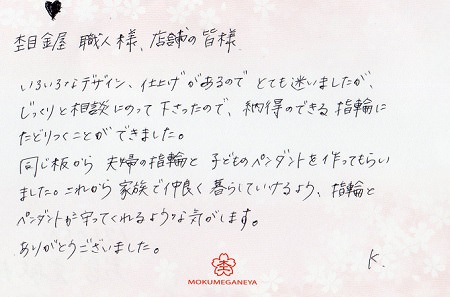 杢目金屋 職人様、店舗の皆様
いろいろなデザイン、仕上げがあるので とても迷いましたが、
じっくりと相談にのって下さったので、納得のできる指輪に
たどりつくことができました。
同じ板から 夫婦の指輪と 子どものペンダントを作ってもらい
ました。これから 家族で仲良く暮らしていけるよう、指輪と
ペンダントが守ってくれるような気がします。
ありがとうございました。
K.
MOKUMEGANEYA